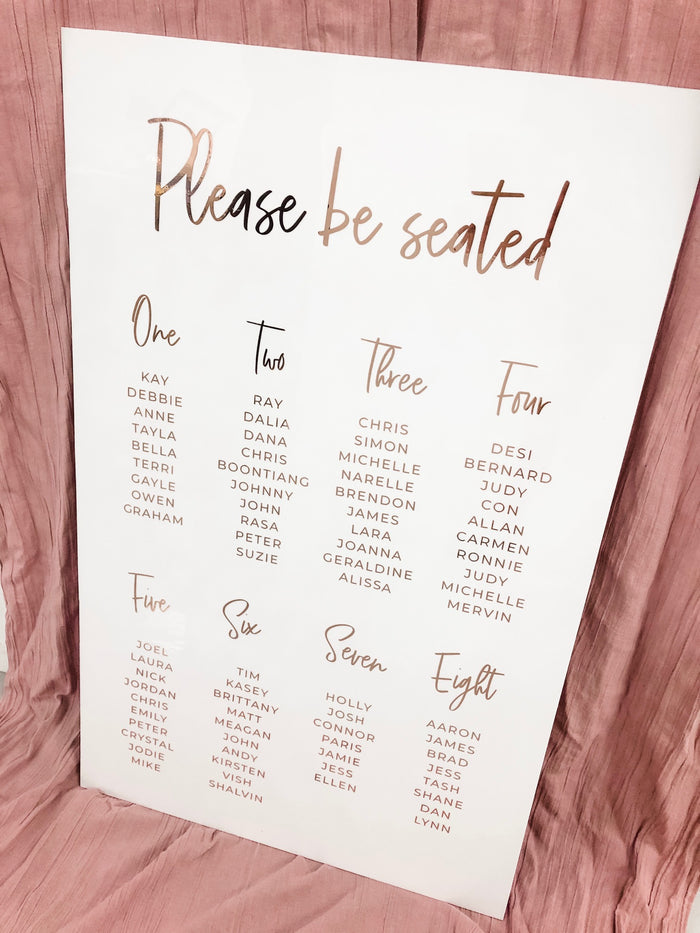 Please be seated
One
KAY
DEBBIE
ANNE
TAYLA
BELLA
TERRI
GAYLE
OWEN
GRAHAM
Two
RAY
DALIA
DANA
CHRIS
BOONTIANG
JOHNNY
JOHN
RASA
PETER
SUZIE
Three
CHRIS
SIMON
MICHELLE
NARELLE
BRENDON
JAMES
LARA
JOANNA
GERALDINE
ALISSA
Four
DESI
BERNARD
JUDY
CON
ALLAN
CARMEN
RONNIE
JUDY
MICHELLE
MERVIN
Five
JOEL
LAURA
NICK
JORDAN
CHRIS
EMILY
PETER
CRYSTAL
JODIE
MIKE
Six
TIM
KASEY
BRITTANY
MATT
MEAGAN
JOHN
ANDY
KIRSTEN
VISH
SHALVIN
Seven
HOLLY
JOSH
CONNOR
PARIS
JAMIE
JESS
ELLEN
Eight
AARON
JAMES
BRAD
JESS
TASH
SHANE
DAN
LYNN